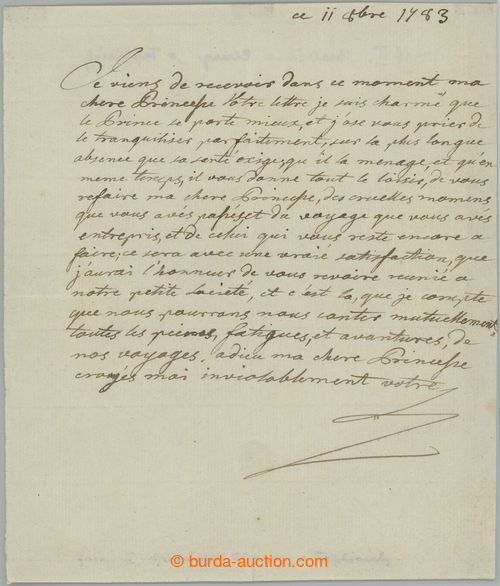 ce 11 8bre 1783
Je viens de recevoir dans ce moment ma
chere Princesse votre lettre je suis charmé que
le Prince se porte mieux, et j'ose vous prier de
le tranquiliser parfaitement, sur la plus longue
absence que sa santé exige, qu il la menage, et qu'en
meme temps, il vous donne tout le loisir, de vous
refaire ma chere Princesse, des cruelles momens
que vous avés passés et du voyage que vous avés
entrepris, et de celui qui vous reste encore a
faire; ce sera avec une vraie satisfaction, que
j'aurai l'honneur de vous revoire reunie a
notre petite societé, et c'est la, que je compte
que nous pourrons nous conter mutuellement,
toutes les peines, fatigues, et avantures, de
nos voyages, adieu ma chere Princesse
croyés moi inviolablement votre
© burda-auction.com